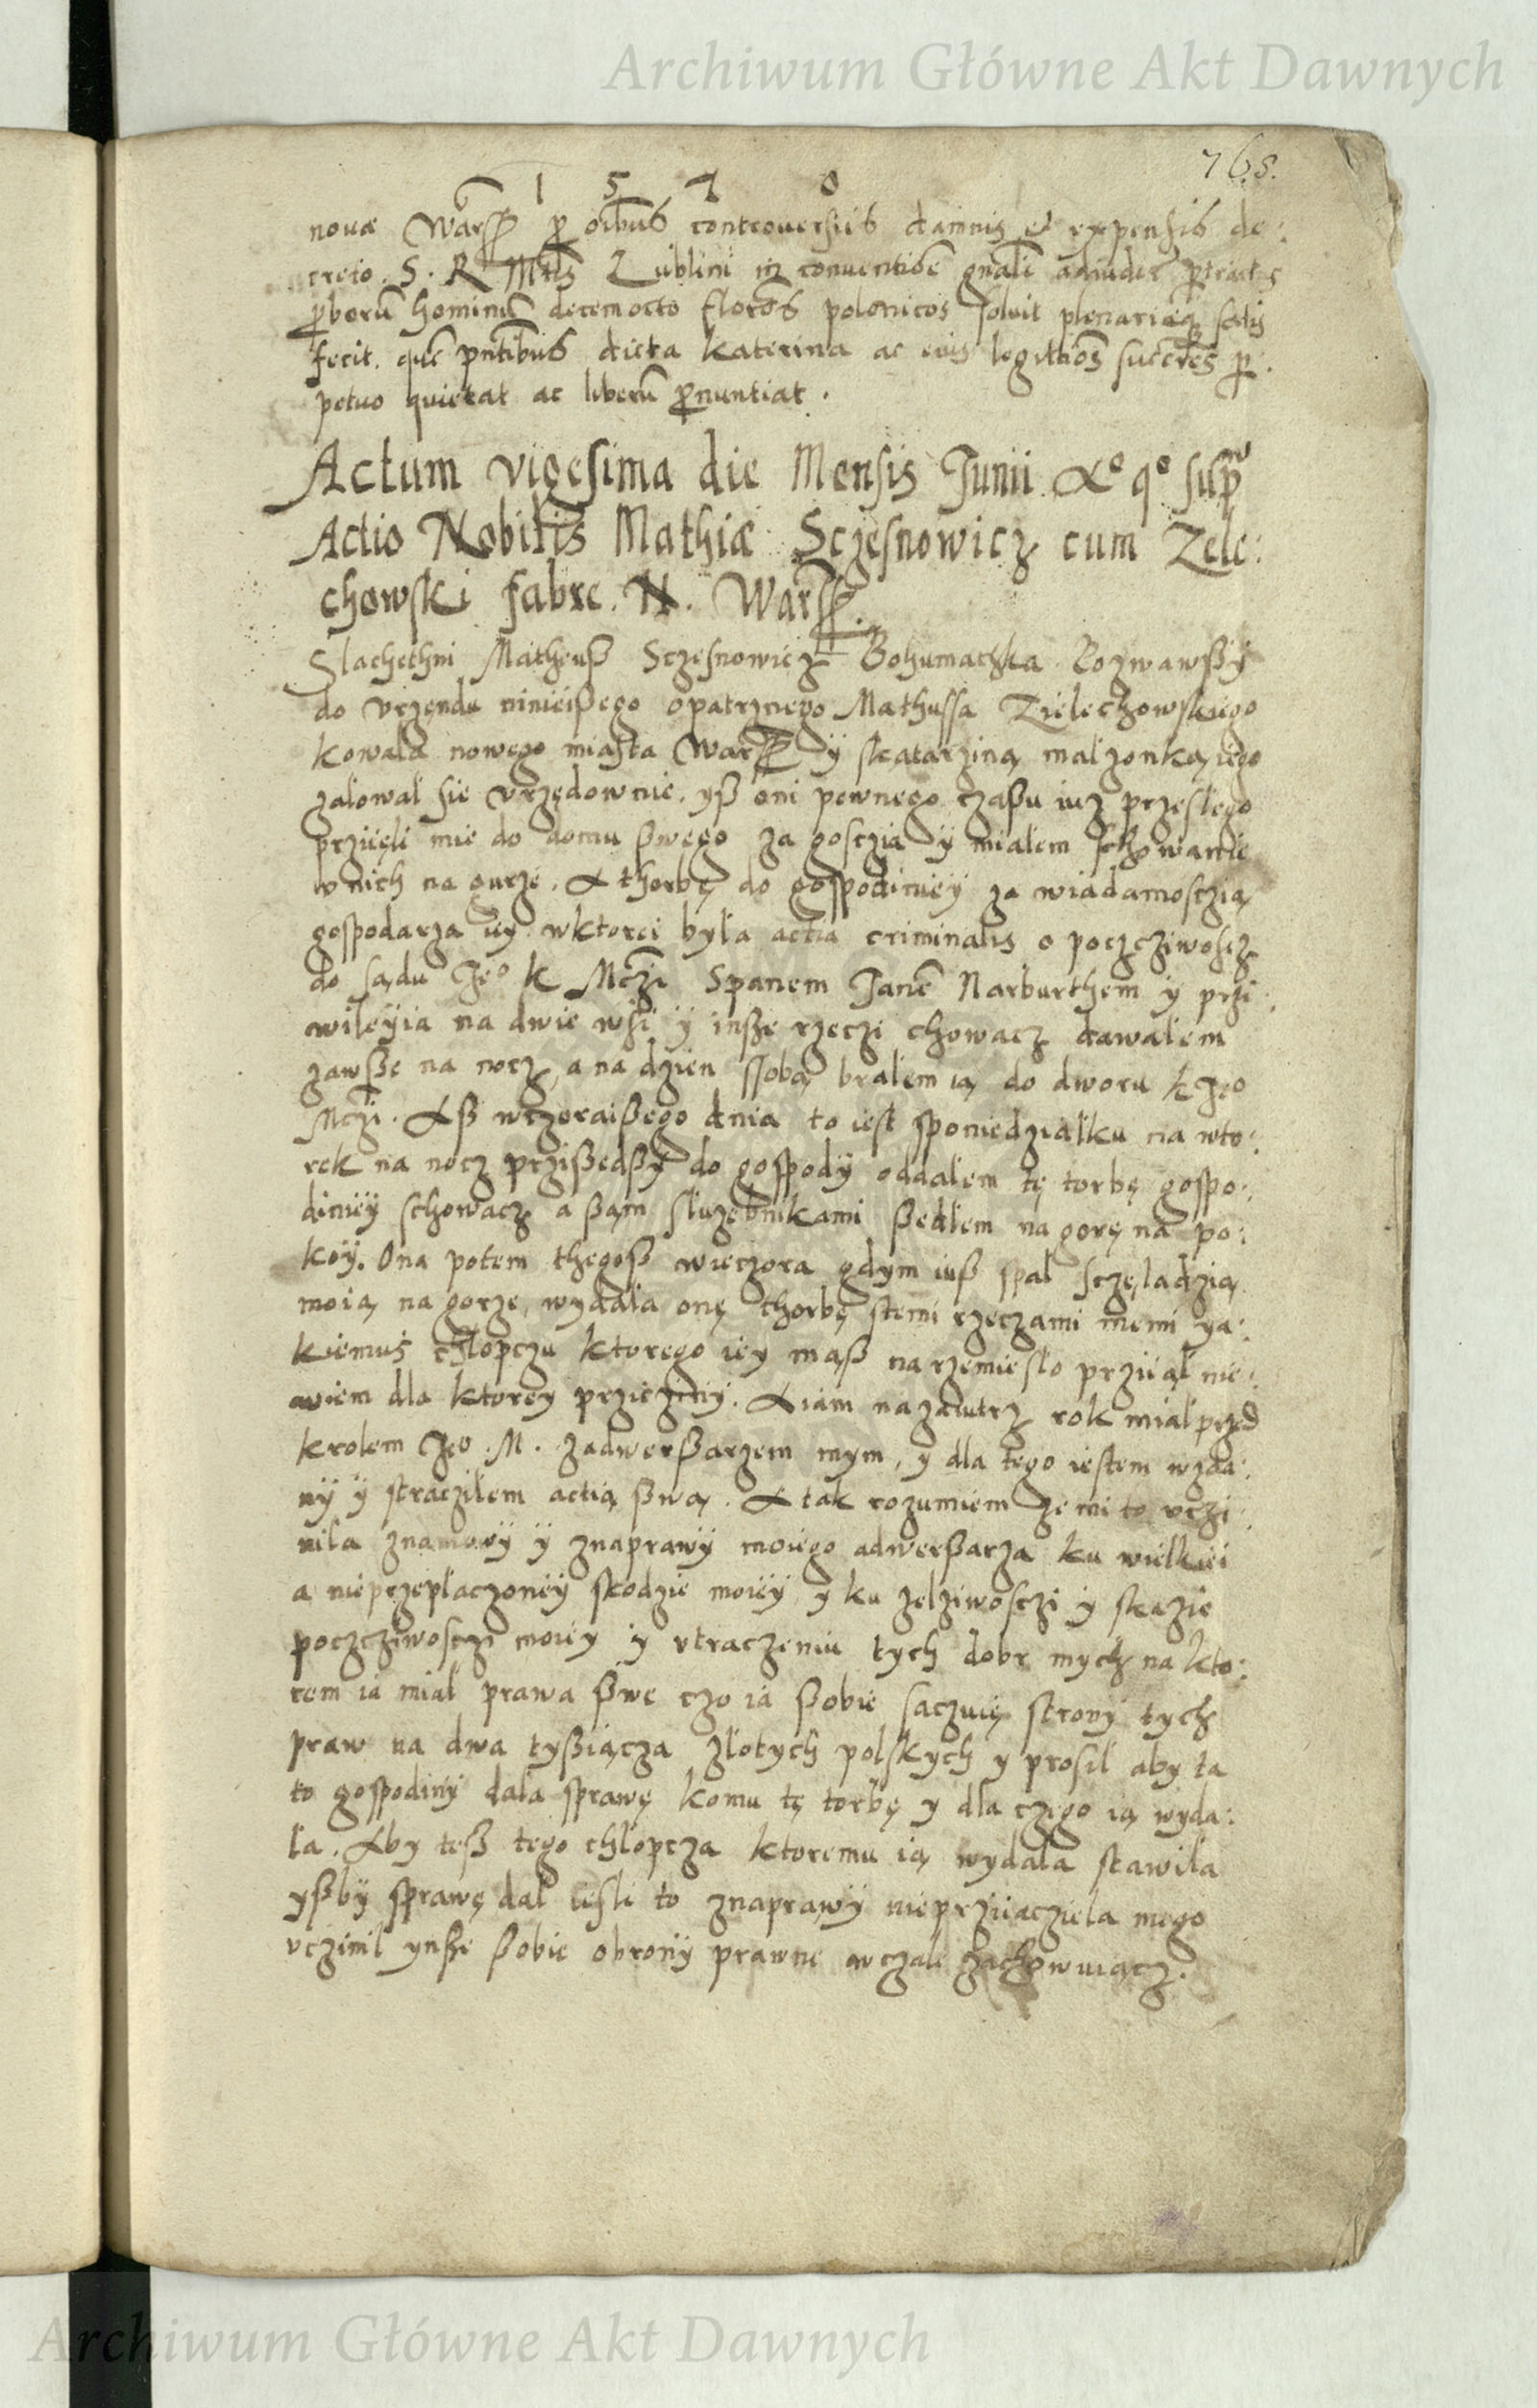 Archiwum Główne Akt Dawnych
765.
1 5 7 0
nouæ Warß p oibus controuersiis damnis et expensis de:
creto. S. R. Mtis Lublini in conuentioe gnali adiudic ptract
pborū hominū decemocto florōs polonicos soluit plenarieq satis
fecit. quē pntibus dicta Katerina ac eius legittiōs succēs p:
petuo quietat ac liberū pnuntiat.
Actum vigesima die Mensis Junii Ao qo sup
Actio Nobilis Mathiæ Sczesnowicz cum Zele:
chowski fabre. N. Warß.
Slachethni Matheuß Sczesnowicz Bohumatka Pozwawßy
do vrzendu ninieißego opatrznego Mathussa Zielechowskiego
kowala nowego miasta Warß ÿ skatarziną malzonką iego
zalowal sie vrzędownie. yß oni pewnego czaßu iuz przeslego
prziięli mie do domu ßwego za goscia ÿ mialem schowanie
v nich na gurze. A thorbę do gospodiniey za wiadamosczią
gospodarza iiy wktorei była actia criminalis o poczcziwoscz
do sądu Jeo K Mczi Spanem Janē Narburthem y przi:
wileyia na dwie wsi ÿ inße rzeczi chowacz dawalem
zawße na nocz, a na dzien ssobą bralem ią do dworu k Jeo
Mczi. Aß wczoraißego dnia to iest sponiedzialku na wto:
rek na nocz przißedßy do gospody oddalem tę torbę gospo:
diniey schowacz a sąm sluzebnikami ßedlem na gorę na po:
koÿ. Ona potem thegoß wieczora gdym iuß spal sczęladzią
moią na gorze, wydala onę thorbę stemi rzeczami memi ya:
kiemuś chlopczu ktorego iey mąß na rzemieslo prziiąl nie:
wiem dla ktorey prziczyny. A iam nazaiutrz rok mial przed
krolem Jeo. M. zadwerßarzem mym, y dla tego iestem wzda:
ny ÿ straczilem actią ßwą. A tak rozumiem ze mi to vczi:
nila znamowy ÿ znaprawy moiego adwerßarza ku wielkiei
a nieprzeplaczoney skodzie moiey y ku zelziwosczi y skazie
poczcziwosczi moiey y vtraczeniu tych dobr mych na kto:
rem ia mial prawa ßwe czo ia ßobie saczuię strony tych
praw na dwa tyßiącza zlotych polskych y prosil aby ta
to gospodiny dala sprawę komu tę torbę y dla czego ią wyda:
la. Aby teß tego chlopcza ktoremu ią wydala stawila
yßby sprawę dal iesli to znaprawy nieprziiacziela mego
vczinil ynße ßobie obrony prawne wczale zachowuiącz.
Archiwum Główne Akt Dawnych